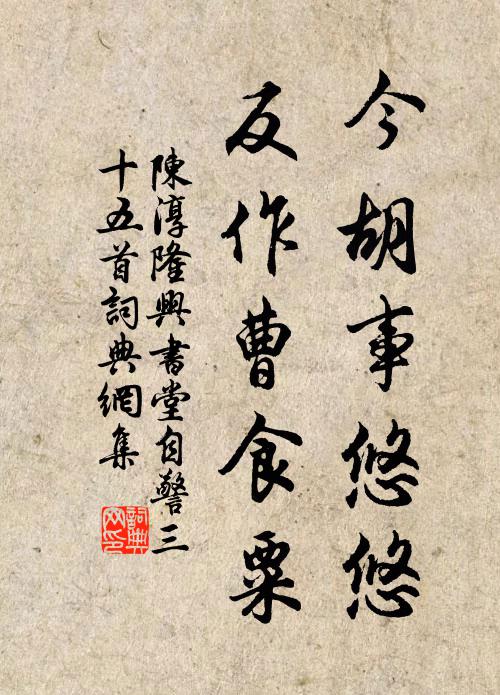 今胡事悠悠
反作曹食粟
陳淳隆興書堂自警三
十五首詞典網集
詞典
网印